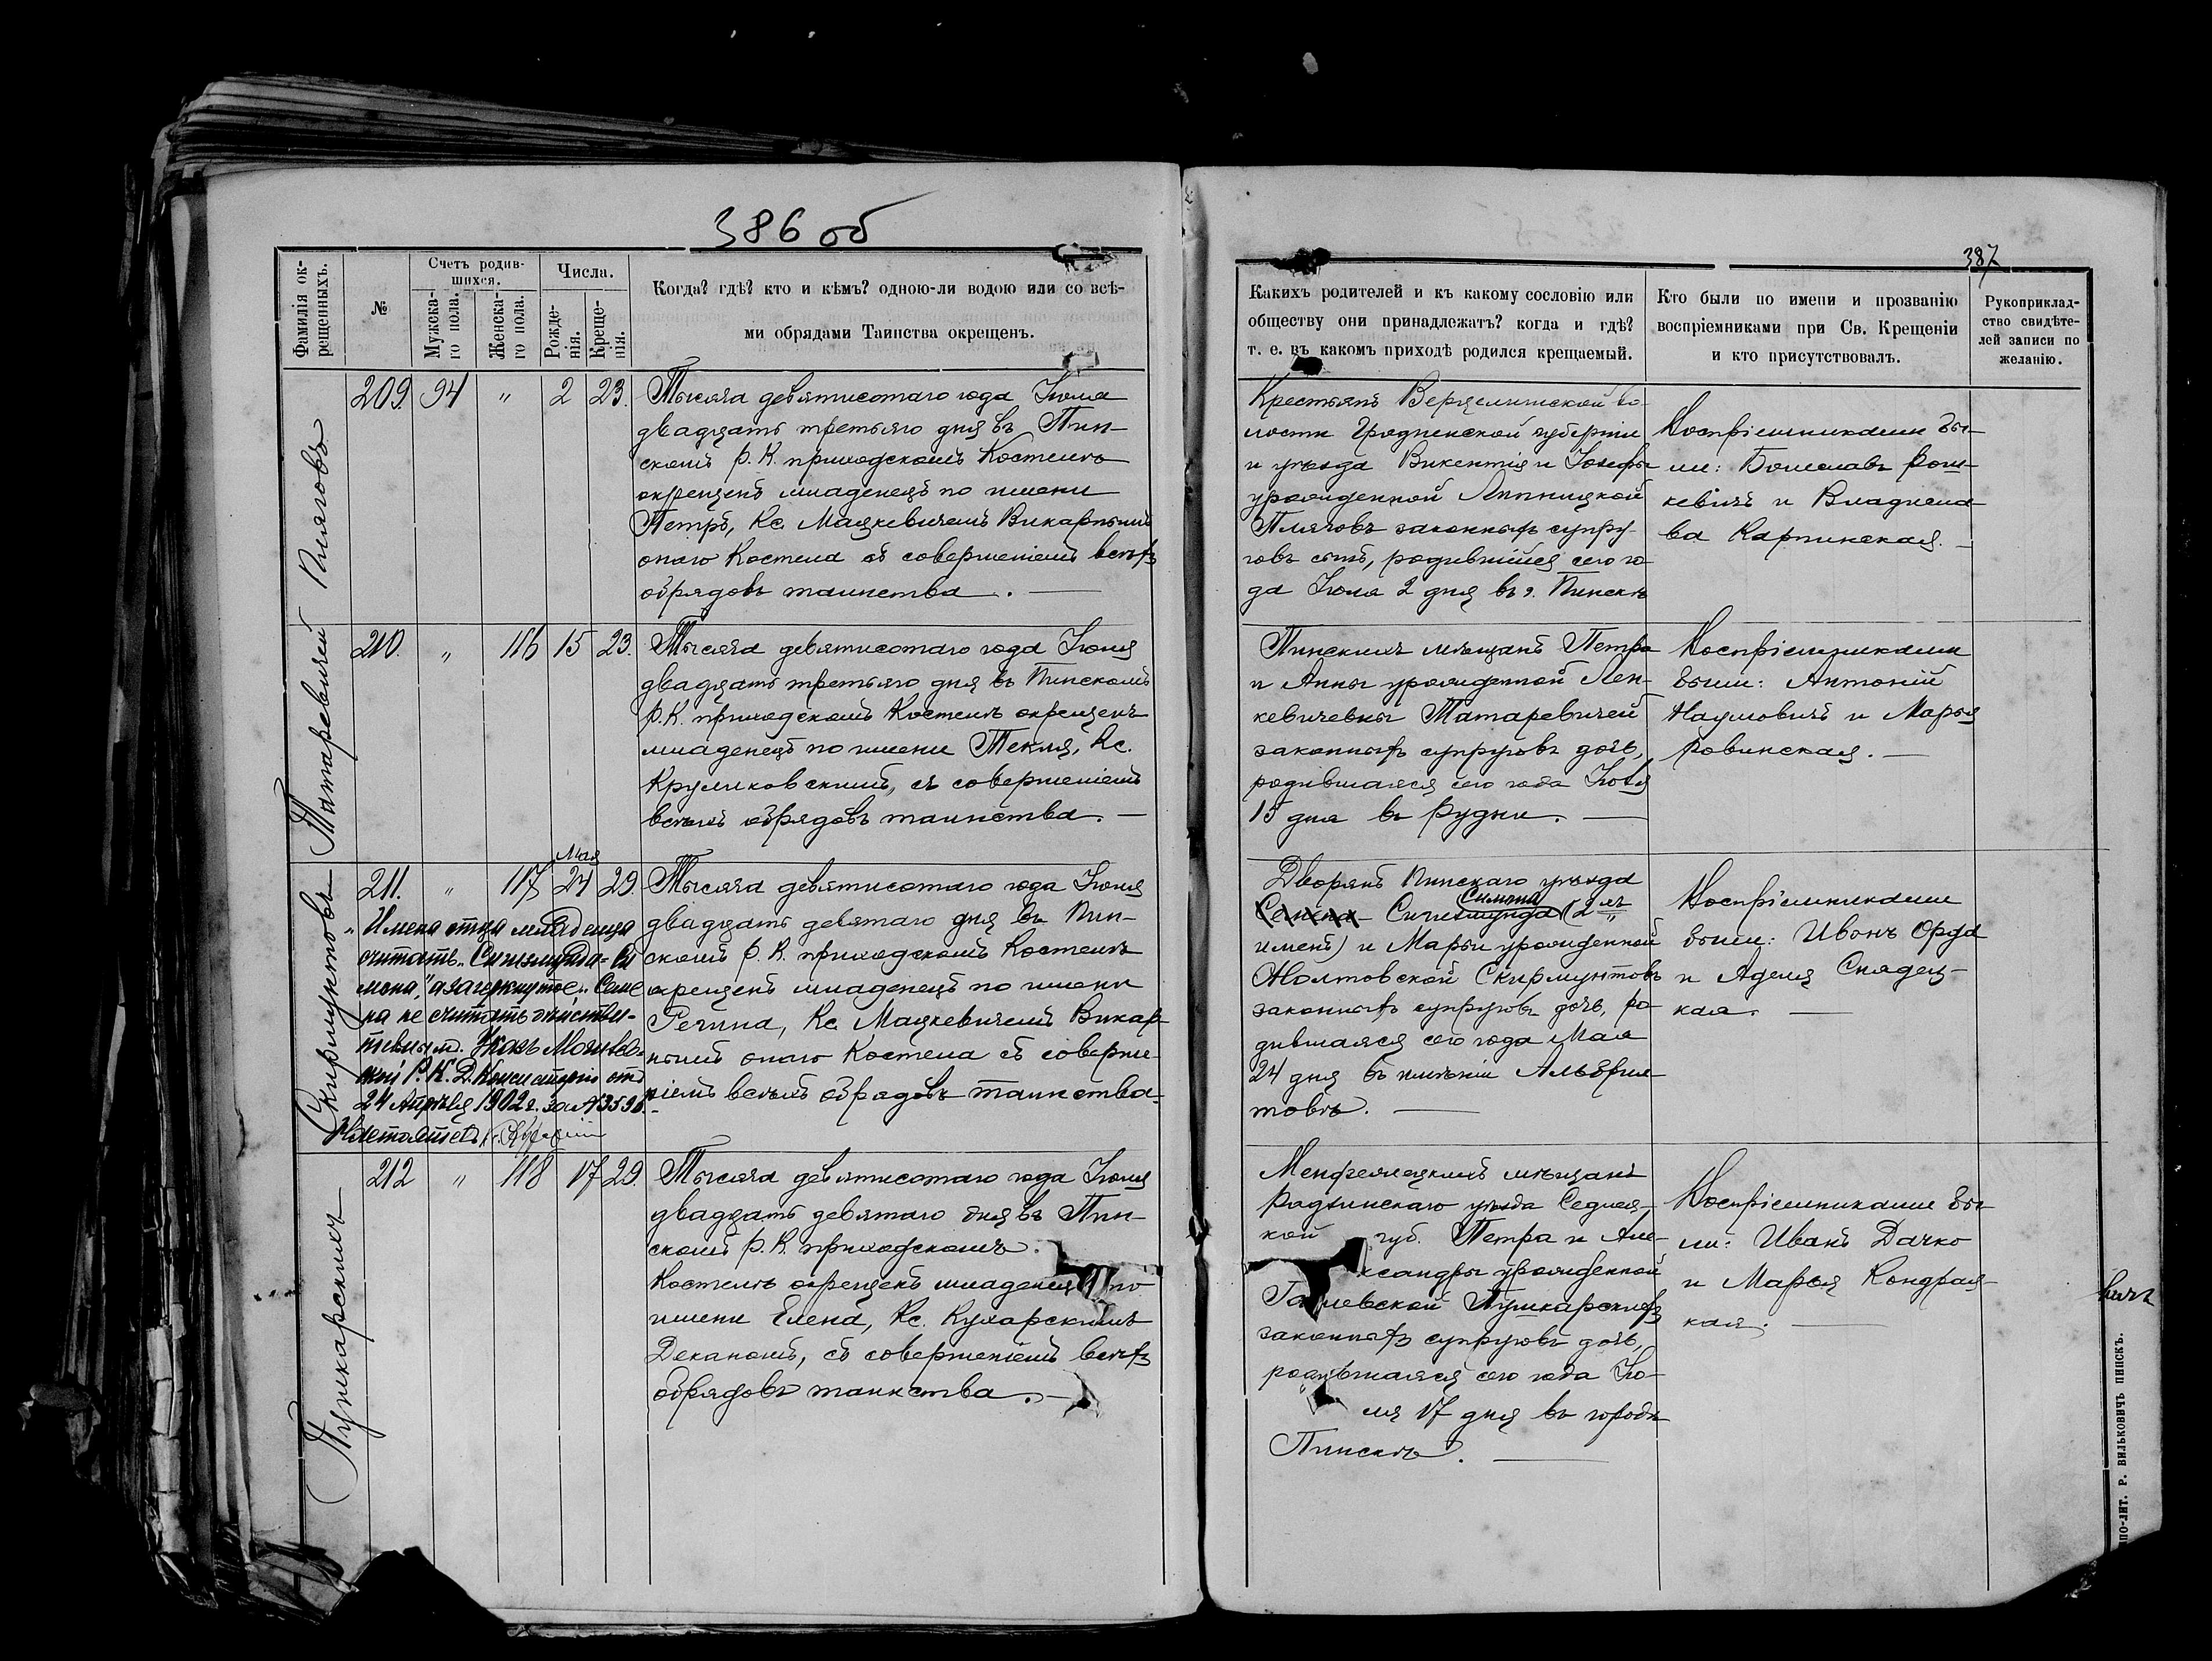 386 об
Фамилія ок-
рещенныхъ.
№
Счетъ родив-
шихся.
Мужска-
го пола.
Женска-
го пола.
Числа.
Рожде-
нія.
Креще-
нія.
Когда? гдѣ? кто и кѣмъ? одною-ли водою или со всѣ-
ми обрядами Таинства окрещенъ.
Пляговъ
209. 94 " 2 23.
Тысяча девятисотаго года Іюня
двадцать третьяго дня въ Пин-
скомъ Р. К. приходскомъ Костелѣ
окрещенъ младенецъ по имени
Петръ, Кс. Мацкевичемъ Викарнымъ
оного Костела съ совершеніемъ всѣхъ
обрядовъ таинства.
Татаревичей
210. " 116 15 23.
Тысяча девятисотаго года Іюня
двадцать третьяго дня въ Пинскомъ
Р. К. приходскомъ Костелѣ окрещенъ
младенецъ по имени Текля, Кс.
Круликовскимъ, съ совершеніемъ
всѣхъ обрядовъ таинства.
Скирмунтовъ
Мая
211. " 117 24 29.
"Имена отца младенца
считать „Сигизмунда-Си
мона," а зачеркнутое „Семе
на не считать дѣйстви-
тельнымъ. Указъ Могилев-
ской Р. К. Д. Консисторіи отъ
24 Апрѣля 1902 г. за № 3598.
Настоятель Кс.
Тысяча девятисотаго года Іюня
двадцать девятаго дня въ Пин-
скомъ Р. К. приходскомъ Костелѣ
окрещенъ младенецъ по имени
Регина, Кс. Мацкевичемъ Викар-
нымъ оного Костела съ соверше-
ніемъ всѣхъ обрядовъ таинства.
Пушкарскихъ
212 " 118 17 29.
Тысяча девятисотаго года Іюня
двадцать девятаго дня въ Пин-
скомъ Р. К. приходскомъ
Костелѣ окрещенъ младенецъ по
имени Елена, Кс. Кухарскимъ
Деканомъ, съ совершеніемъ всѣхъ
обрядовъ таинства.
387
Какихъ родителей и къ какому сословію или
обществу они принадлежатъ? когда и гдѣ?
т. е. въ какомъ приходѣ родился крещаемый.
Кто были по имени и прозванію
воспріемниками при Св. Крещеніи
и кто присутствовалъ.
Рукоприклад-
ство свидѣте-
лей записи по
желанію.
Крестьянъ Верцелишской во-
лости Гродненской губерніи
и уѣзда Викентія и Іозефы
урожденной Липницкой
Пляговъ законныхъ супру-
говъ сынъ, родившійся сего го-
да Іюня 2 дня въ г. Пинскѣ
Воспріемниками бы-
ли: Болеславъ Рош-
кевичъ и Владисла-
ва Карпинская.
Пинскихъ мѣщанъ Петра
и Анны урожденной Лен-
кевичевны Татаревичей
законныхъ супруговъ дочь,
родившаяся сего года Іюня
15 дня въ Рудни.
Воспріемниками
были: Антоній
Наумовичъ и Марья
Ровинская.
Дворянъ Пинскаго уѣзда
Симона
Семена Сигизмунда (2 хъ
именъ) и Марьи урожденной
Жолтовской Скирмунтовъ
законныхъ супруговъ дочь, ро-
дившаяся сего года Мая
24 дня въ имѣніи Альбрех-
товѣ.
Воспріемниками
были: Ивонъ Орда
и Аделя Снядец-
кая.
мѣщанъ
Радзинскаго уѣзда Седлец-
кой губ. Петра и Але-
ксандры урожденной
Пушкарскихъ
законныхъ супруговъ дочь,
родившаяся сего года Ію-
ня 17 дня въ городѣ
Пинскѣ.
Воспріемниками бы-
ли: Иванъ Дачко
и Марья Кондрац-
кая.
вичъ
ПО-ЛИТ. Р. ВИЛЬКОВИЧЪ ПИНСКЪ.